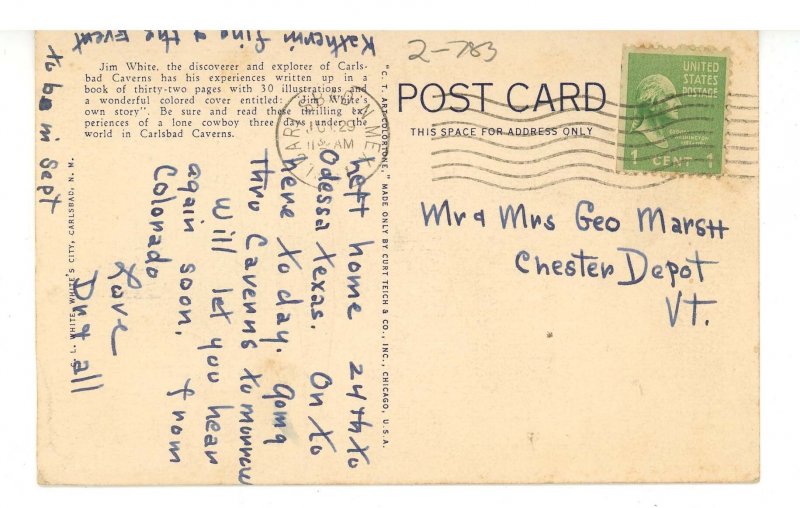 2-783
Jim White, the discoverer and explorer of Carls-
bad Caverns has his experiences written up in a
book of thirty-two pages with 30 illustrations and
a wonderful colored cover entitled: "Jim White's
own story". Be sure and read these thrilling ex-
periences of a lone cowboy three days under the
world in Carlsbad Caverns.
L. WHITE, WHITE'S CITY, CARLSBAD, N. M.
"C. T. ART-COLORTONE," MADE ONLY BY CURT TEICH & CO., INC., CHICAGO, U.S.A.
POST CARD
THIS SPACE FOR ADDRESS ONLY
CARLSBAD N.MEX
29
AM
UNITED
STATES
POSTAGE
GEORGE
WASHINGTON
1 CENT 1
Left home 24th to
Odessa texas. On to
here to day. Going
thro Caverns to morrow
Will let you hear
again soon, from
Colorado
Love
D&t all
Katherin fine & the Event
to be in Sept
Mr & Mrs Geo Marsh
Chester Depot
VT.